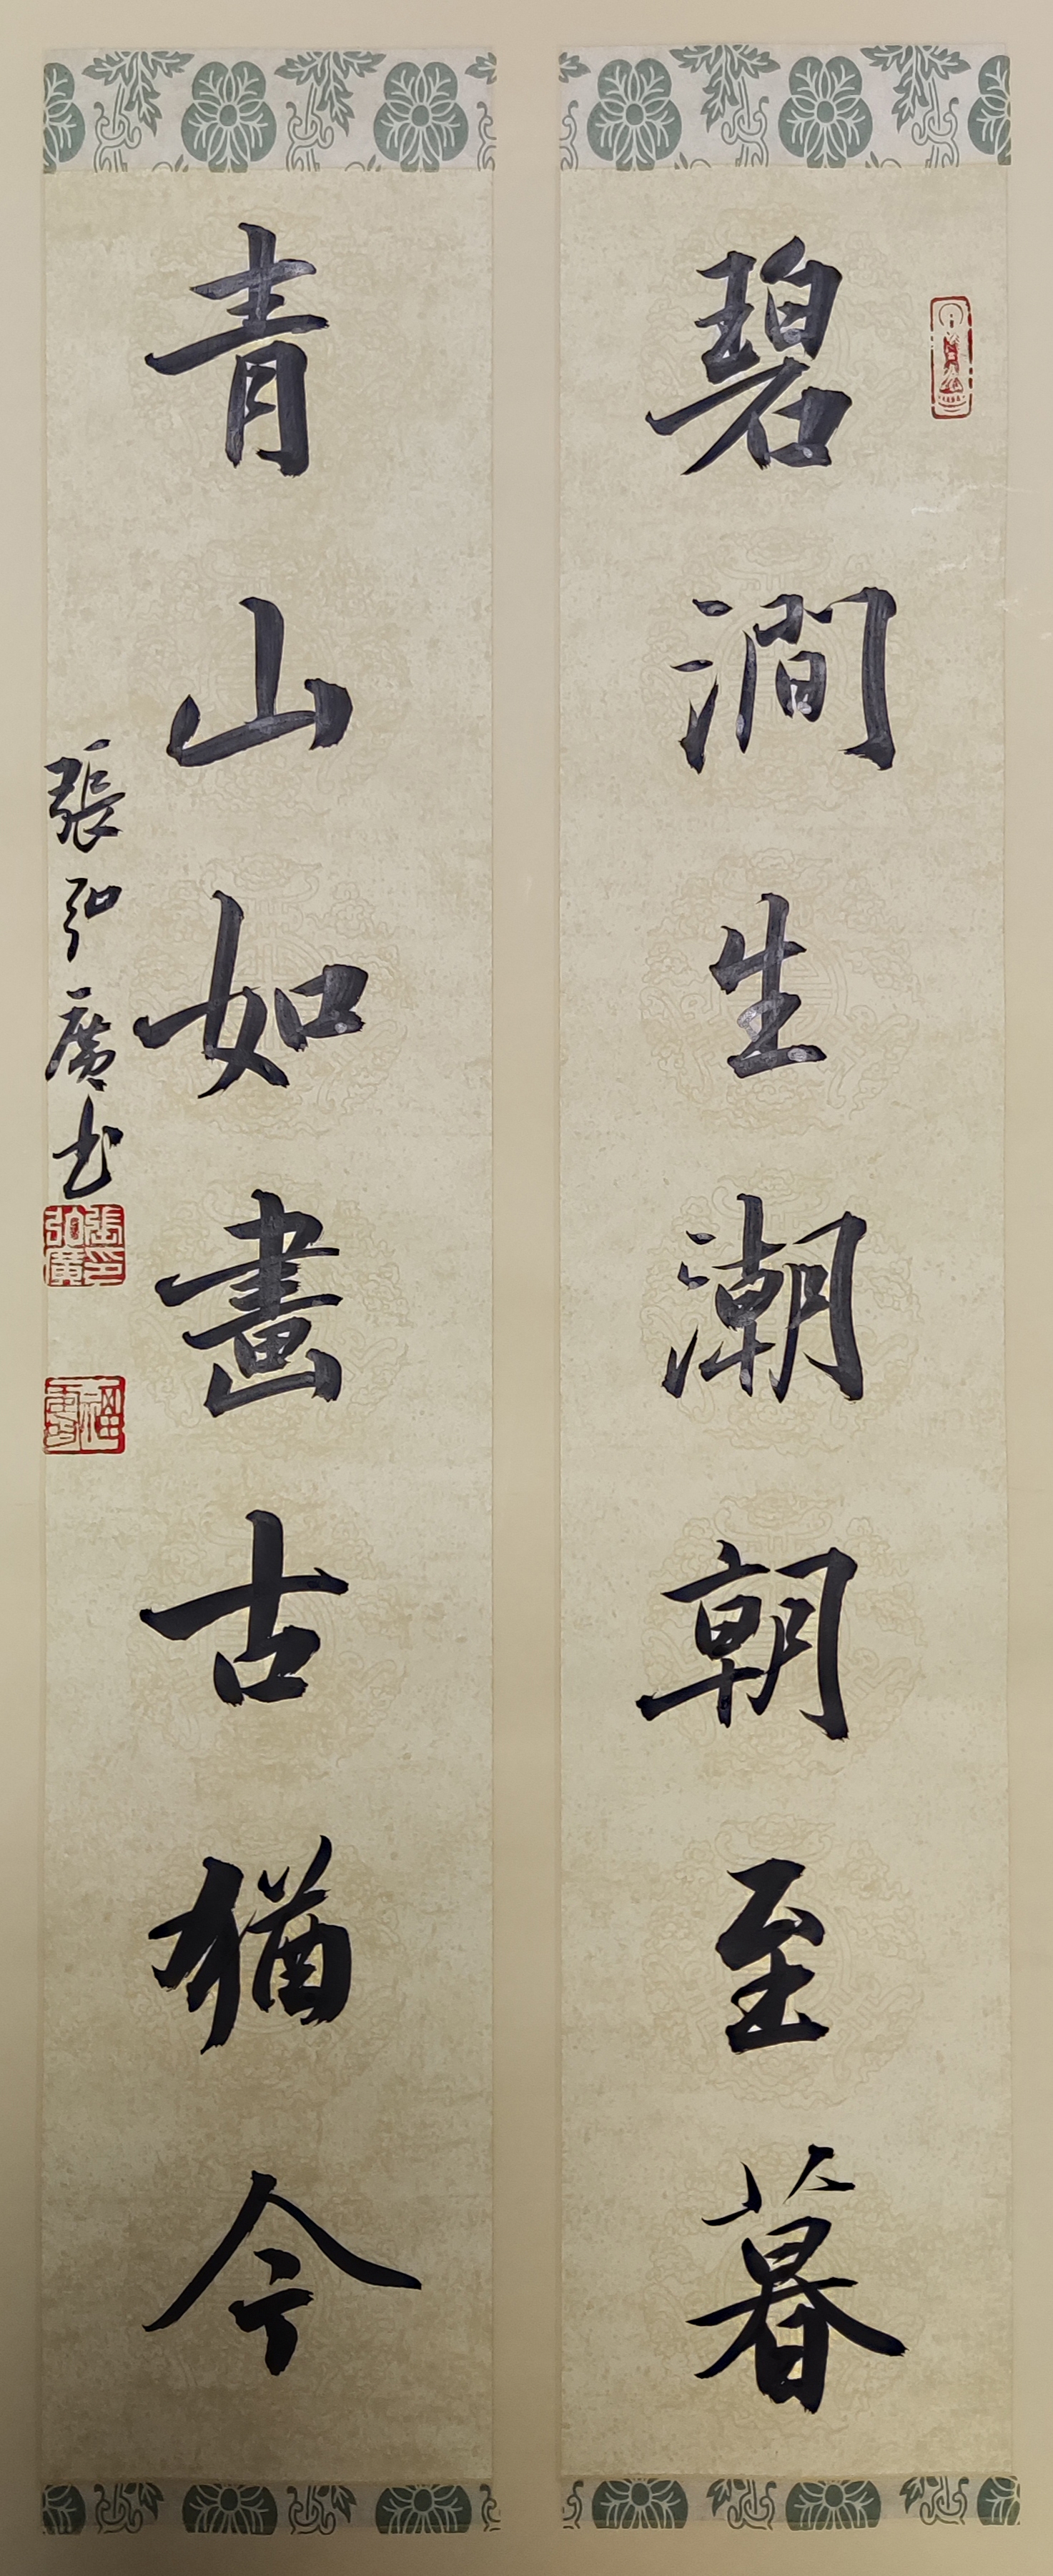 碧澗生潮朝至暮
青山如畫古猶今
張弘廣书
張印弘廣